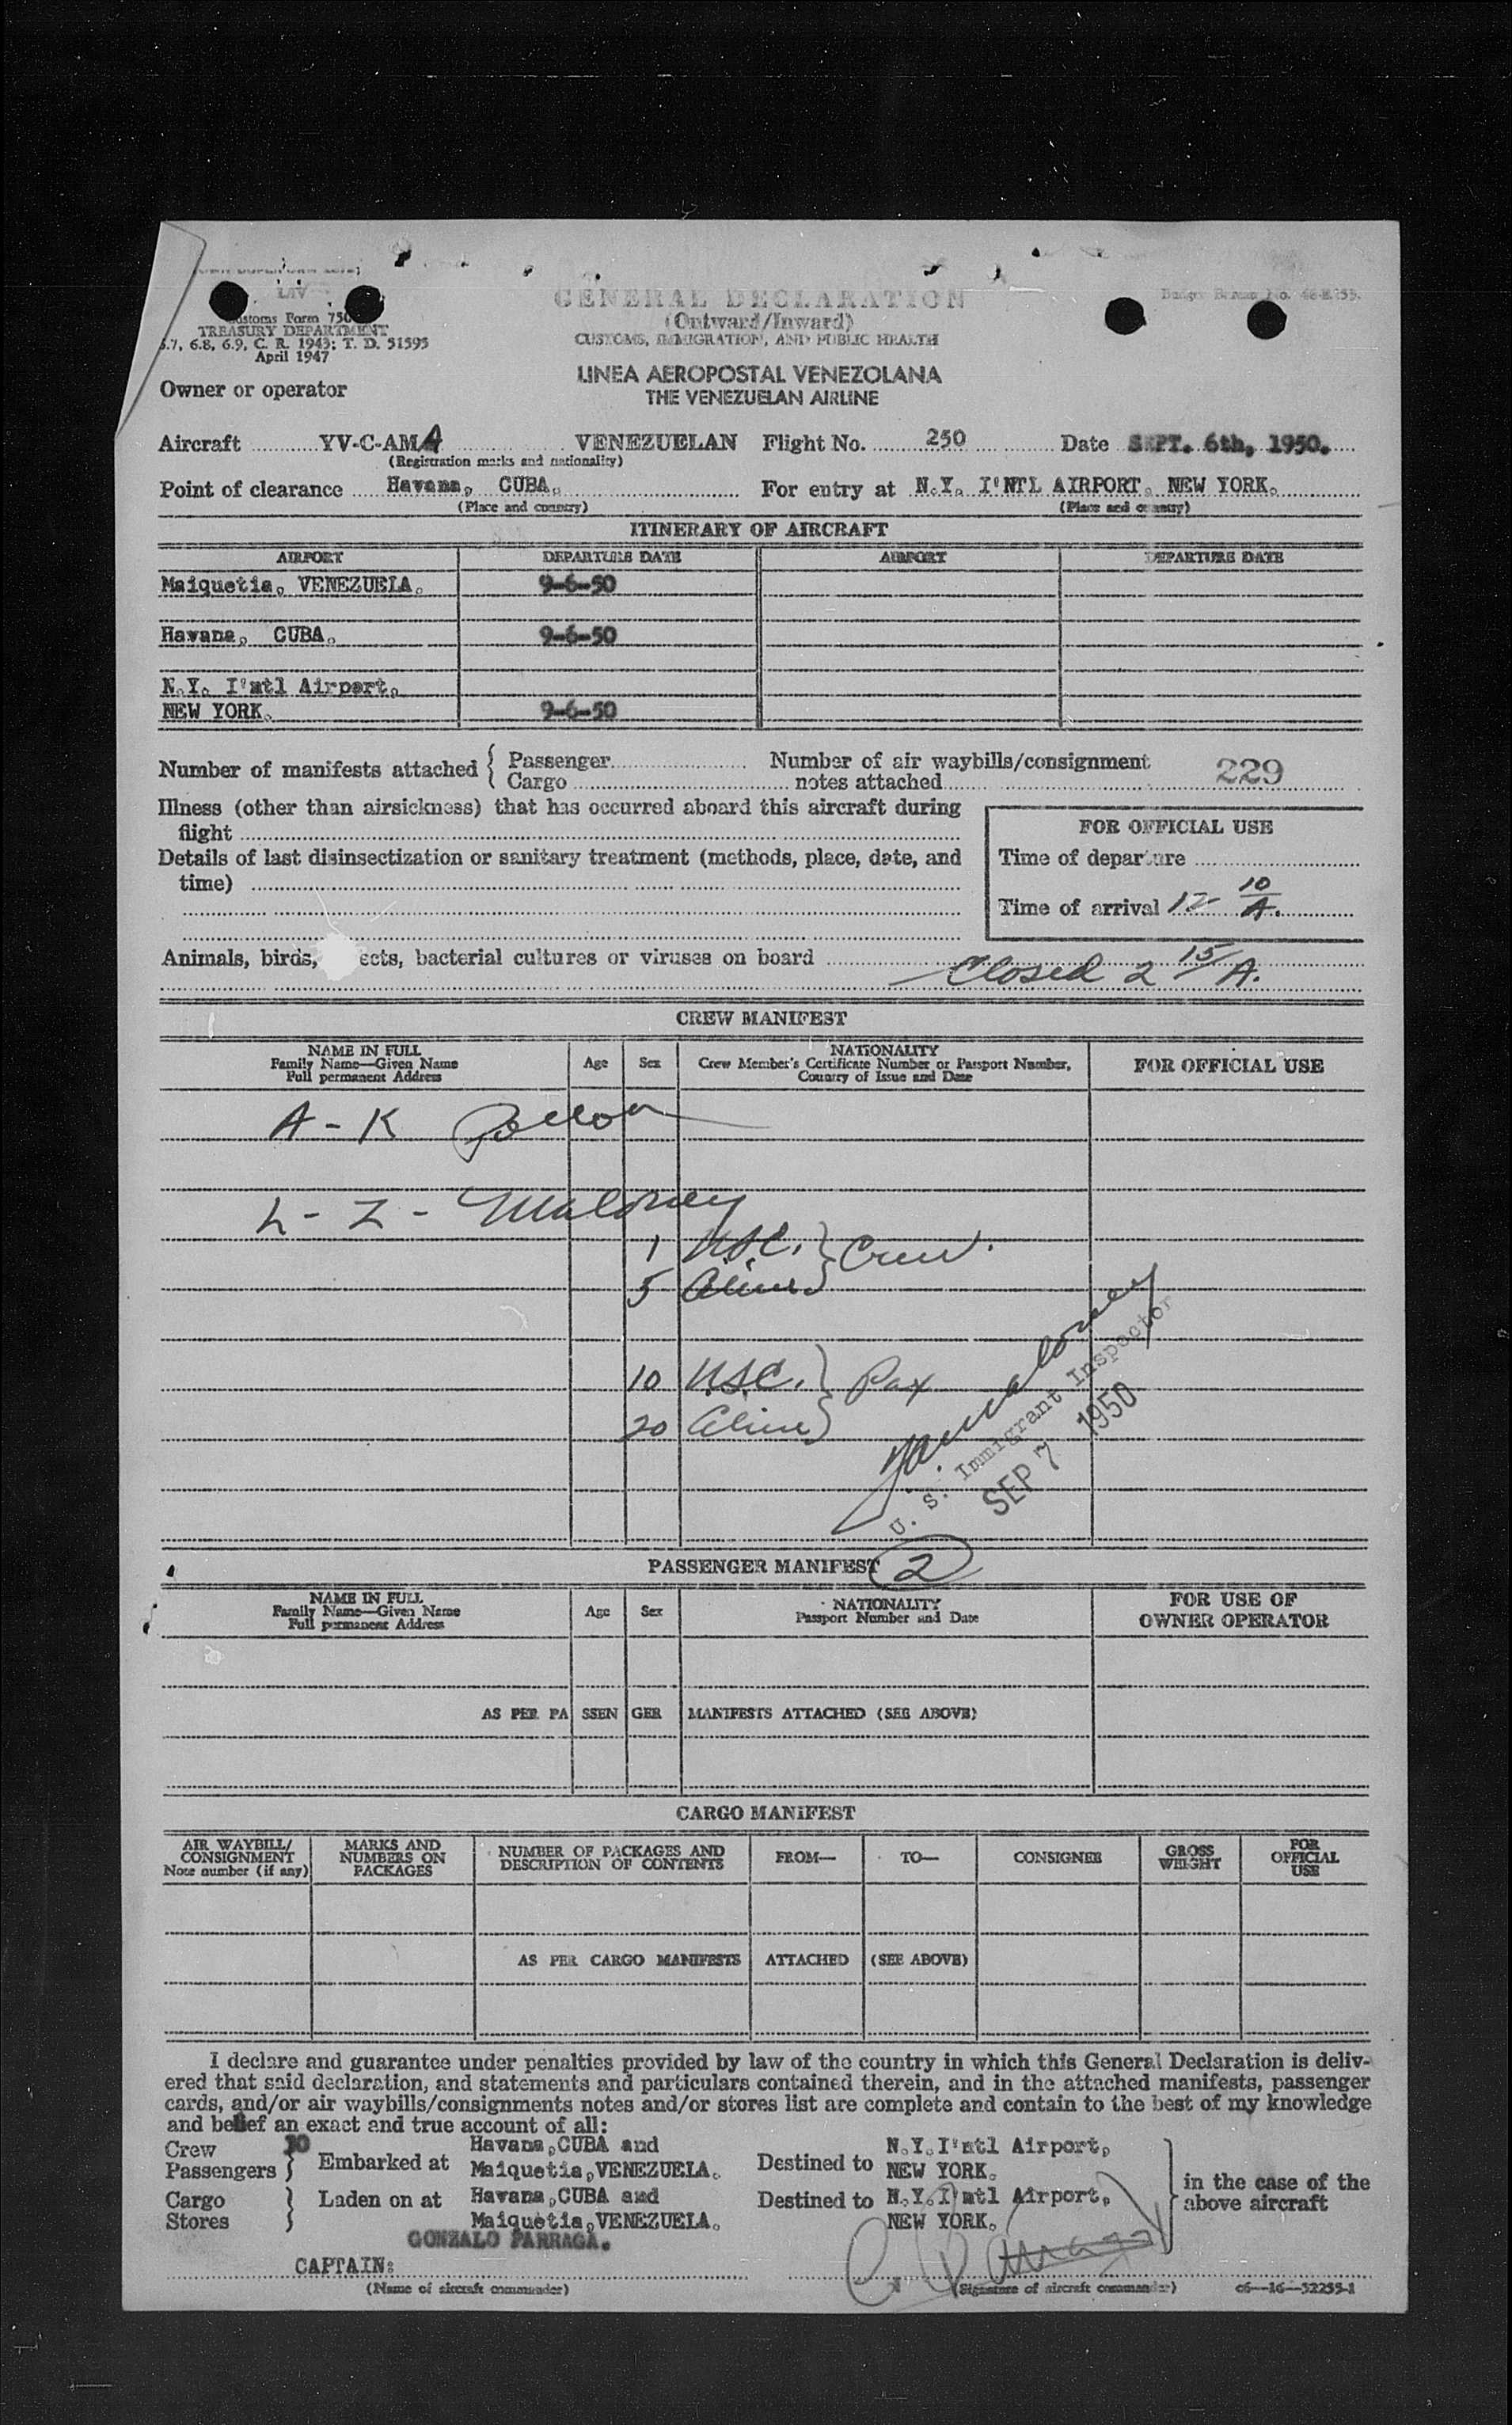 GENERAL DECLARATION
(Outward/Inward)
CUSTOMS, IMMIGRATION, AND PUBLIC HEALTH
Customs Form 750
TREASURY DEPARTMENT
6.7, 6.8, 6.9, C. R. 1943; T. D. 51595
April 1947
LINEA AEROPOSTAL VENEZOLANA
THE VENEZUELAN AIRLINE
Owner or operator
Aircraft YV-C-AMA VENEZUELAN Flight No. 250 Date SEPT. 6th, 1950.
(Registration marks and nationality)
Point of clearance Havana, CUBA. For entry at N.Y. I'NTL AIRPORT. NEW YORK.
(Place and country) (Place and country)
ITINERARY OF AIRCRAFT
AIRPORT DEPARTURE DATE AIRPORT DEPARTURE DATE
Maiquetia, VENEZUELA. 9-6-50
Havana, CUBA. 9-6-50
N.Y. I'ntl Airport,
NEW YORK. 9-6-50
Number of manifests attached { Passenger Number of air waybills/consignment 229
Cargo notes attached
Illness (other than airsickness) that has occurred aboard this aircraft during
flight
FOR OFFICIAL USE
Details of last disinsectization or sanitary treatment (methods, place, date, and
time)
Time of departure
Time of arrival 12 10/A.
Animals, birds, ects, bacterial cultures or viruses on board
Closed 2 15/A.
CREW MANIFEST
NAME IN FULL
Family Name—Given Name
Full permanent Address
Age Sex
NATIONALITY
Crew Member's Certificate Number or Passport Number,
Country of Issue and Date
FOR OFFICIAL USE
A - K
L - Z - Maloney
1 USC. } Crew.
5 Aliens
10 USC. } Pax
20 Aliens
U. S. Immigrant Inspector
SEP 7 1950
PASSENGER MANIFEST 2
NAME IN FULL
Family Name—Given Name
Full permanent Address
Age Sex
NATIONALITY
Passport Number and Date
FOR USE OF
OWNER OPERATOR
AS PER PASSENGER MANIFESTS ATTACHED (SEE ABOVE)
CARGO MANIFEST
AIR WAYBILL/
CONSIGNMENT
Note number (if any)
MARKS AND
NUMBERS ON
PACKAGES
NUMBER OF PACKAGES AND
DESCRIPTION OF CONTENTS
FROM— TO— CONSIGNEE
GROSS
WEIGHT
FOR
OFFICIAL
USE
AS PER CARGO MANIFESTS ATTACHED (SEE ABOVE)
I declare and guarantee under penalties provided by law of the country in which this General Declaration is deliv-
ered that said declaration, and statements and particulars contained therein, and in the attached manifests, passenger
cards, and/or air waybills/consignments notes and/or stores list are complete and contain to the best of my knowledge
and belief an exact and true account of all:
Crew 30
Passengers } Embarked at Havana, CUBA and
Maiquetia, VENEZUELA.
Destined to N.Y. I'ntl Airport,
NEW YORK.
Cargo
Stores } Laden on at Havana, CUBA and
Maiquetia, VENEZUELA.
Destined to N.Y. I'ntl Airport,
NEW YORK.
} in the case of the
above aircraft
GONZALO PARRAGA.
CAPTAIN:
(Name of aircraft commander)
(Signature of aircraft commander) c6—16—52255-1